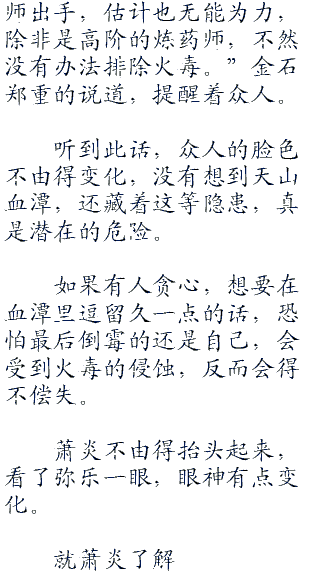 师出手，估计也无能为力，
除非是高阶的炼药师，不然
没有办法排除火毒。”金石
郑重的说道，提醒着众人。
听到此话，众人的脸色
不由得变化，没有想到天山
血潭，还藏着这等隐患，真
是潜在的危险。
如果有人贪心，想要在
血潭里逗留久一点的话，恐
怕最后倒霉的还是自己，会
受到火毒的侵蚀，反而会得
不偿失。
萧炎不由得抬头起来，
看了弥乐一眼，眼神有点变
化。
就萧炎了解